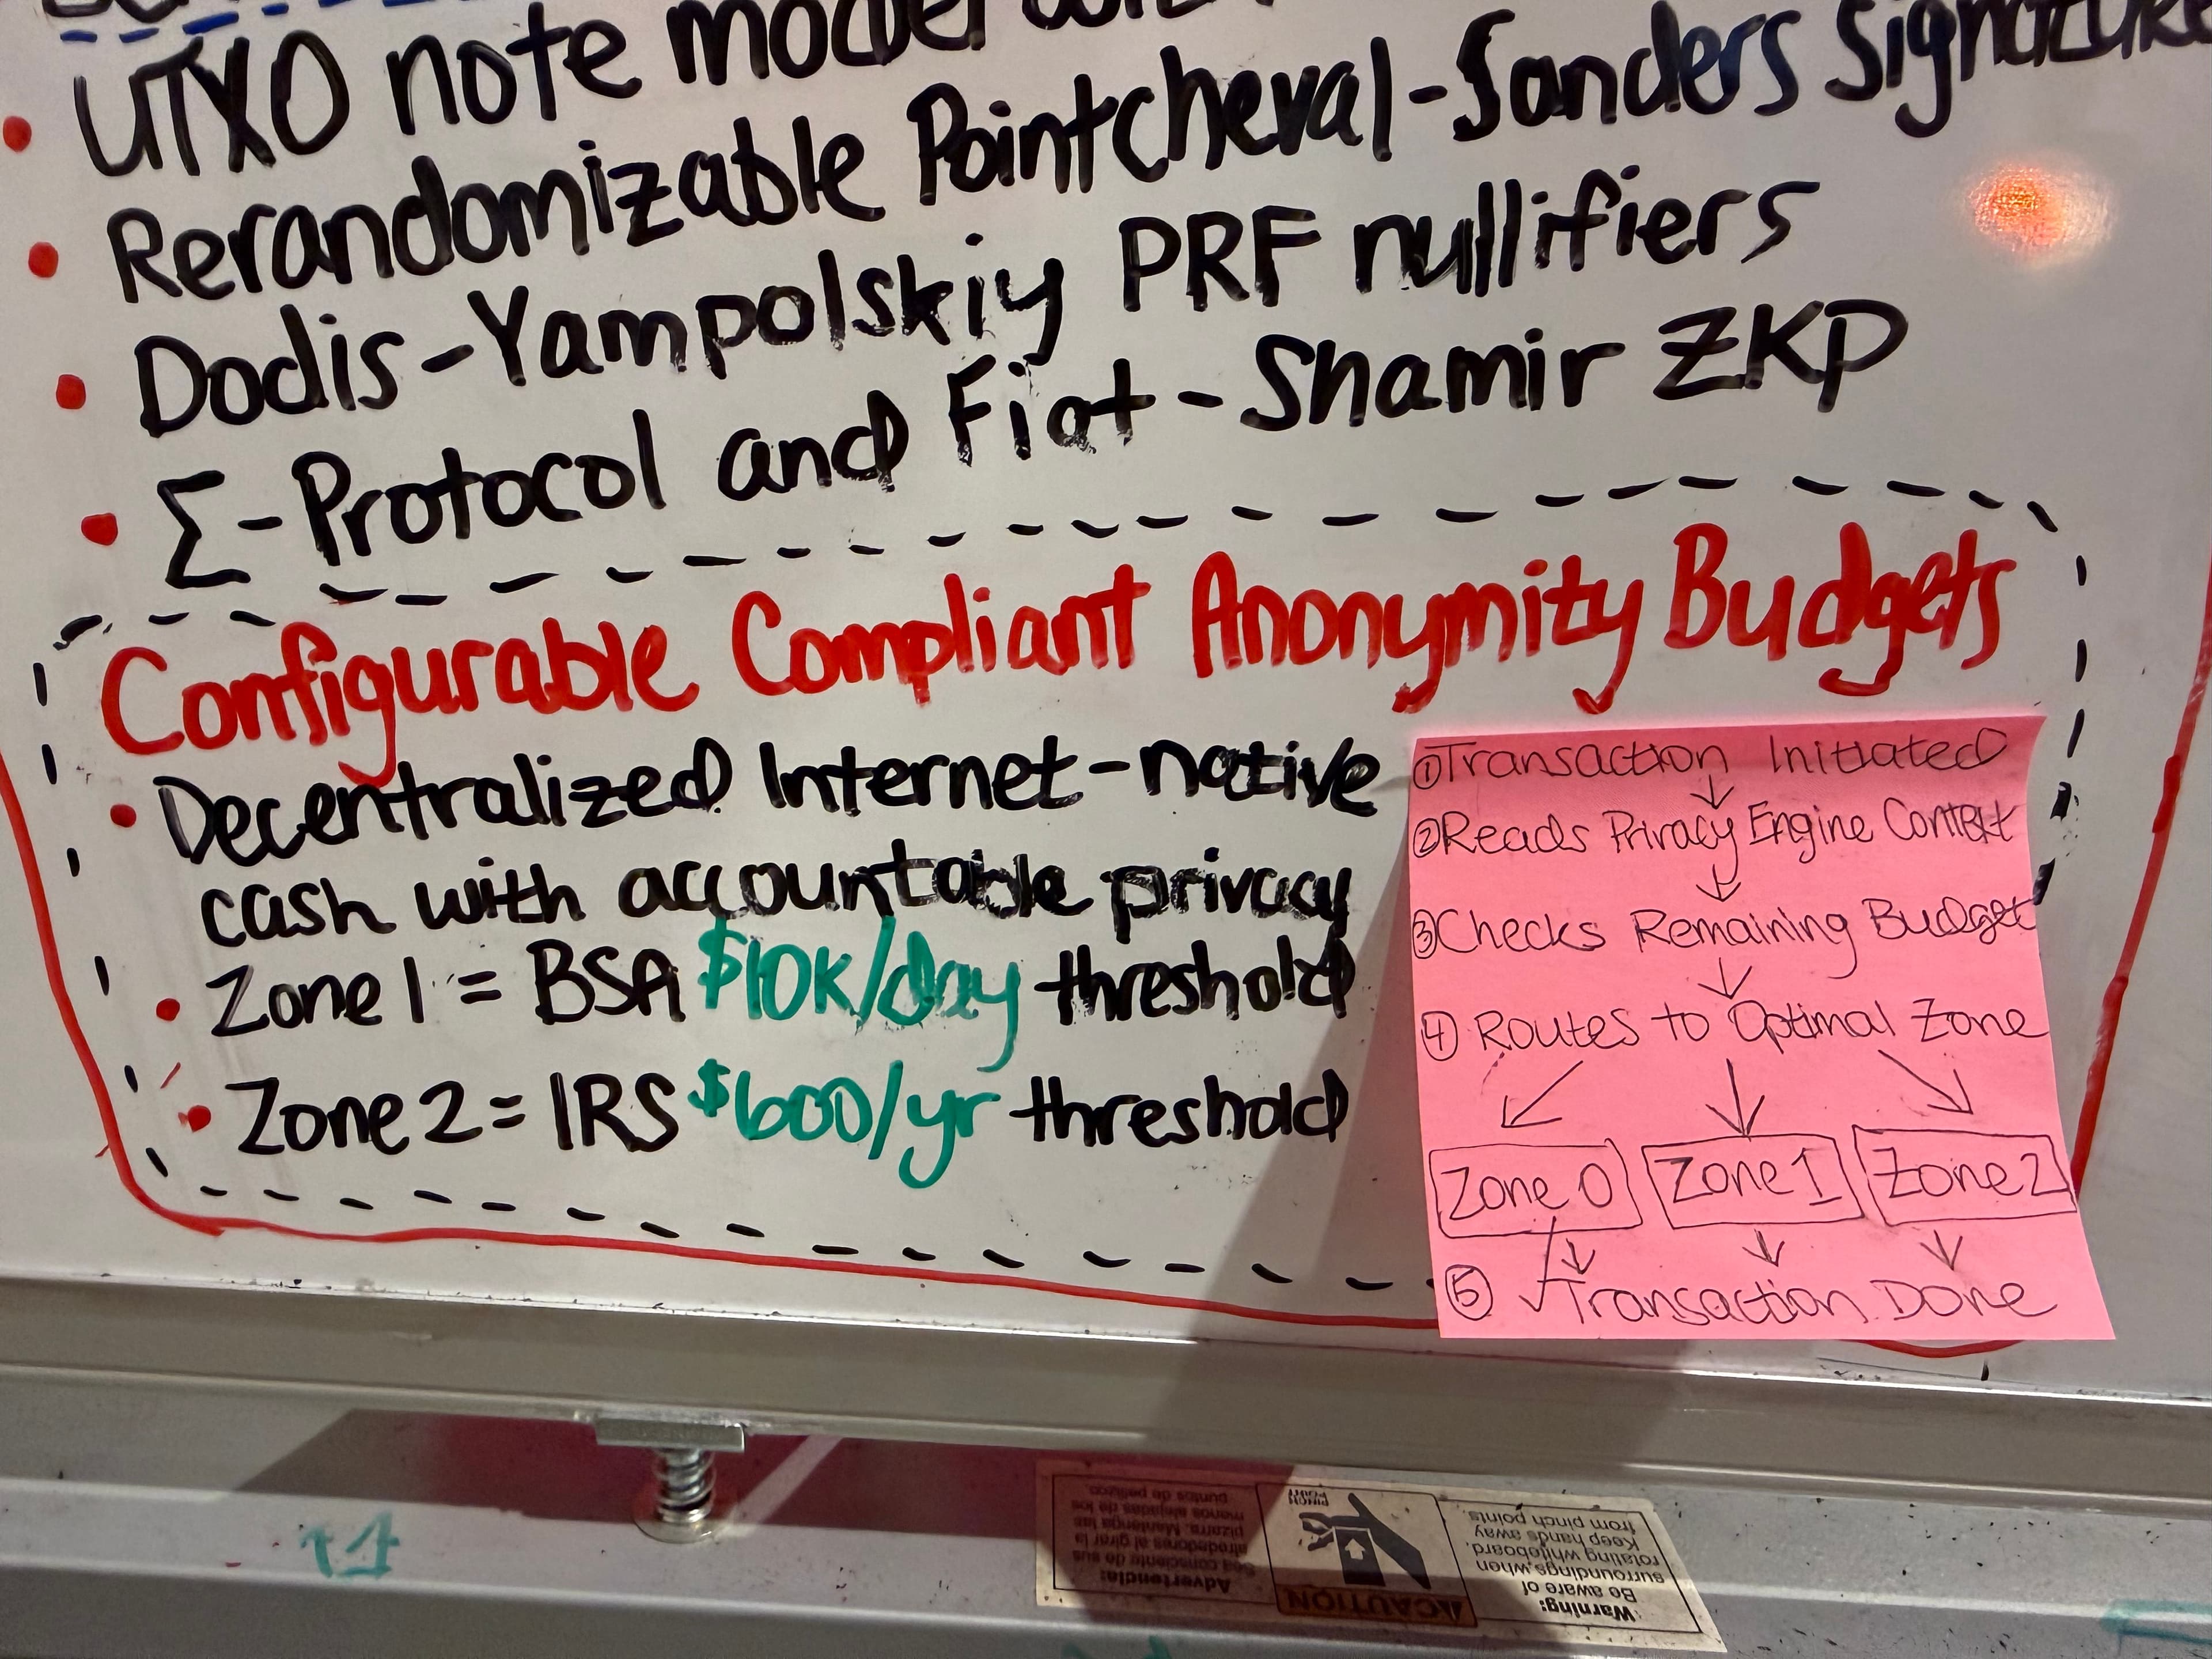 UTXO note model
Rerandomizable Pointcheval-Sanders Signature
Dodis-Yampolskiy PRF nullifiers
Σ-Protocol and Fiat-Shamir ZKP
Configurable Compliant Anonymity Budgets
Decentralized Internet-native
cash with accountable privacy
Zone 1 = BSA $10K/day threshold
Zone 2 = IRS $600/yr threshold
① Transaction Initiated
② Reads Privacy Engine Context
③ Checks Remaining Budget
④ Routes to Optimal Zone
Zone 0 Zone 1 Zone 2
⑤ ✓ Transaction Done
Warning:
Be aware of
surroundings when
rotating whiteboard.
Keep hands away
from pinch points
⚠CAUTION
PINCH
POINT
Advertencia:
Sea consciente de sus
alrededores al girar la
pizarra. Mantenga las
manos alejadas de los
puntos de pellizco.